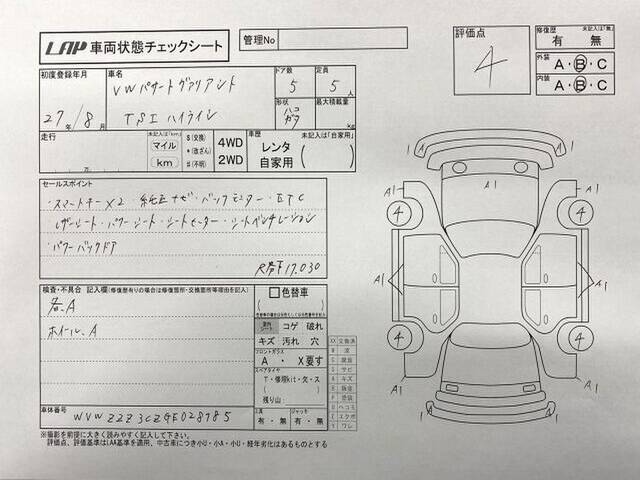 LAP 車両状態チェックシート
管理No
評価点
4
修復歴
未記入は「無」
有 ・ 無
外装
A・B・C
内装
A・B・C
初度登録年月
27年/8月
車名
VWパサートヴァリアント
TSI ハイライン
ドア数
5
定員
5人
形状
最大積載量
kg
走行
未記入は「km」
マイル
km
$(交換)
*(改ざん)
#(不明)
4WD
2WD
車歴
未記入は「自家用」
レンタ
自家用
セールスポイント
・スマートキー×2 純正ナビ・バックモニター・ETC
レザーシート・パワーシート・シートヒーター・シートベンチレーション
・パワーバックドア
R券下17.030
検査・不具合 記入欄(修復歴有りの場合は修復箇所・交換箇所等理由を記入)
各.A
ホイール.A
色替車
コゲ 破れ
キズ 汚れ 穴
フロントガラス
A ・ X要す
スペアタイヤ
T・修理kit・欠・ス
残り山
工具
有・無
ジャッキ
有・無
XX 交換済
W 波
S サビ
A キズ
P 塗装
U ヘコミ
Y ワレ
車体番号
WVWZZZ3CZGE028985
※撮影を前提に大きく読みやすく記入して下さい。
評価点、評価基準はLAA基準を適用、中古車につき小U・小A・小U・経年劣化はあるものとする
A1
A1
A1
4
4
A1
A1
4
4
A1
A1